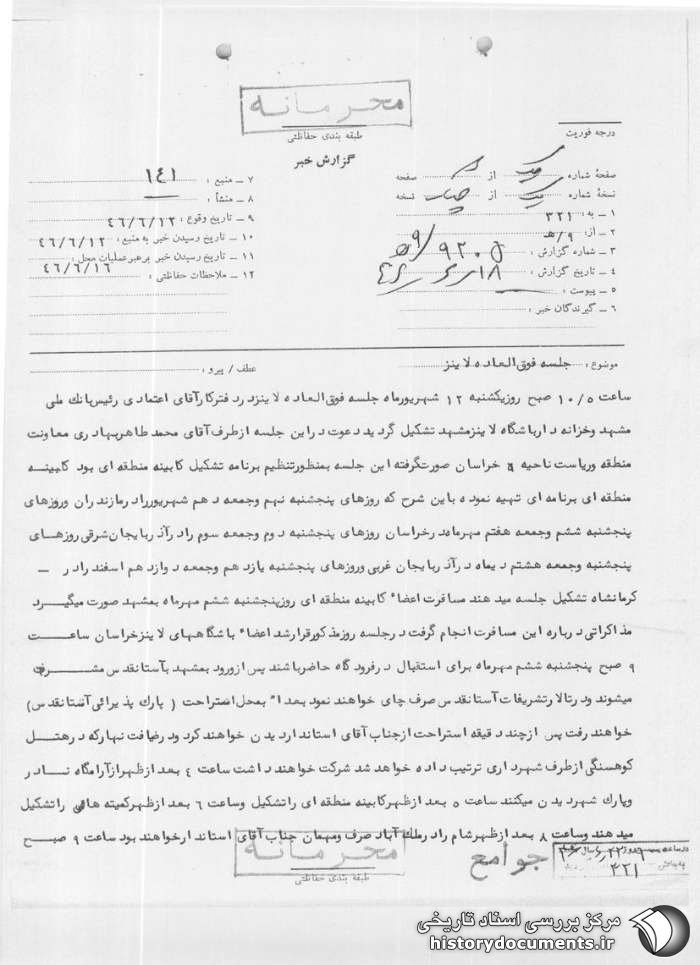 محرمانه
طبقه بندی حفاظتی
گزارش خبر
درجه فوریت
صفحهٔ شماره یک از صفحه
نسخهٔ شماره یک از چهار نسخه
۱ ـ به : ۳۲۱
۲ ـ از: ۹/هـ
۳ ـ شماره گزارش : ۹۲۰۵/۹هـ
۴ ـ تاریخ گزارش : ۴۶/۶/۱۸
۵ ـ پیوست :
۶ ـ گیرندگان خبر :
۷ ـ منبع : ۱۴۱
۸ ـ منشأ :
۹ ـ تاریخ وقوع : ۴۶/۶/۱۲
۱۰ ـ تاریخ رسیدن خبر به منبع : ۴۶/۶/۱۲
۱۱ ـ تاریخ رسیدن خبر برهبر عملیات محل : ۴۶/۶/۱۶
۱۲ ـ ملاحظات حفاظتی :
موضوع : جلسه فوق العاده لاینز
عطف / پیرو :
ساعت ۱۰/۵ صبح روزیکشنبه ۱۲ شهریورماه جلسه فوق العاده لاینزدردفترکارآقای اعتمادی رئیس بانک ملی
مشهد وخزانه دارباشگاه لاینزمشهد تشکیل گردید دعوت دراین جلسه ازطرف آقای محمد طاهربهادری معاونت
منطقه وریاست ناحیه ۵ خراسان صورت گرفته این جلسه بمنظورتنظیم برنامه تشکیل کابینه منطقه ای بود کابینه
منطقه ای برنامه ای تهیه نموده باین شرح که روزهای پنجشنبه نهم وجمعه دهم شهریوررادرمازندران وروزهای
پنجشنبه ششم وجمعه هفتم مهرماه درخراسان روزهای پنجشنبه دوم وجمعه سوم رادرآذربایجان شرقی روزهای
پنجشنبه وجمعه هشتم دیماه درآذربایجان غربی وروزهای پنجشنبه یازدهم وجمعه دوازدهم اسفند رادر ـ
کرمانشاه تشکیل جلسه میدهند مسافرت اعضاء کابینه منطقه ای روزپنجشنبه ششم مهرماه بمشهد صورت میگیرد
مذاکراتی درباره این مسافرت انجام گرفت درجلسه روزمذکورقرارشد اعضاء باشگاههای لاینزخراسان ساعت
۹ صبح پنجشنبه ششم مهرماه برای استقبال درفرودگاه حاضرباشند پس ازورود بمشهد بآستانقدس مشرف
میشوند ودرتالارتشریفات آستانقدس صرف چای خواهند نمود بعداً بمحل استراحت ( پارک پذیرائی آستانقدس )
خواهند رفت پس ازچند دقیقه استراحت ازجناب آقای استاندار دیدن خواهند کرد ودرضیافت نهارکه درهتل
کوهسنگی ازطرف شهرداری ترتیب داده خواهد شد شرکت خواهند داشت ساعت ۴ بعد ازظهرازآرامگاه نادر
وپارک شهردیدن میکنند ساعت ۵ بعد ازظهرکابینه منطقه ای راتشکیل وساعت ۶ بعد ازظهرکمیته هائی راتشکیل
میدهند وساعت ۸ بعد ازظهرشام رادرملک آباد صرف ومهمان جناب آقای استاندارخواهند بود ساعت ۹ صبح
محرمانه
طبقه بندی حفاظتی
جوامع
۳۲۱
مرکز بررسی اسناد تاریخی
historydocuments.ir